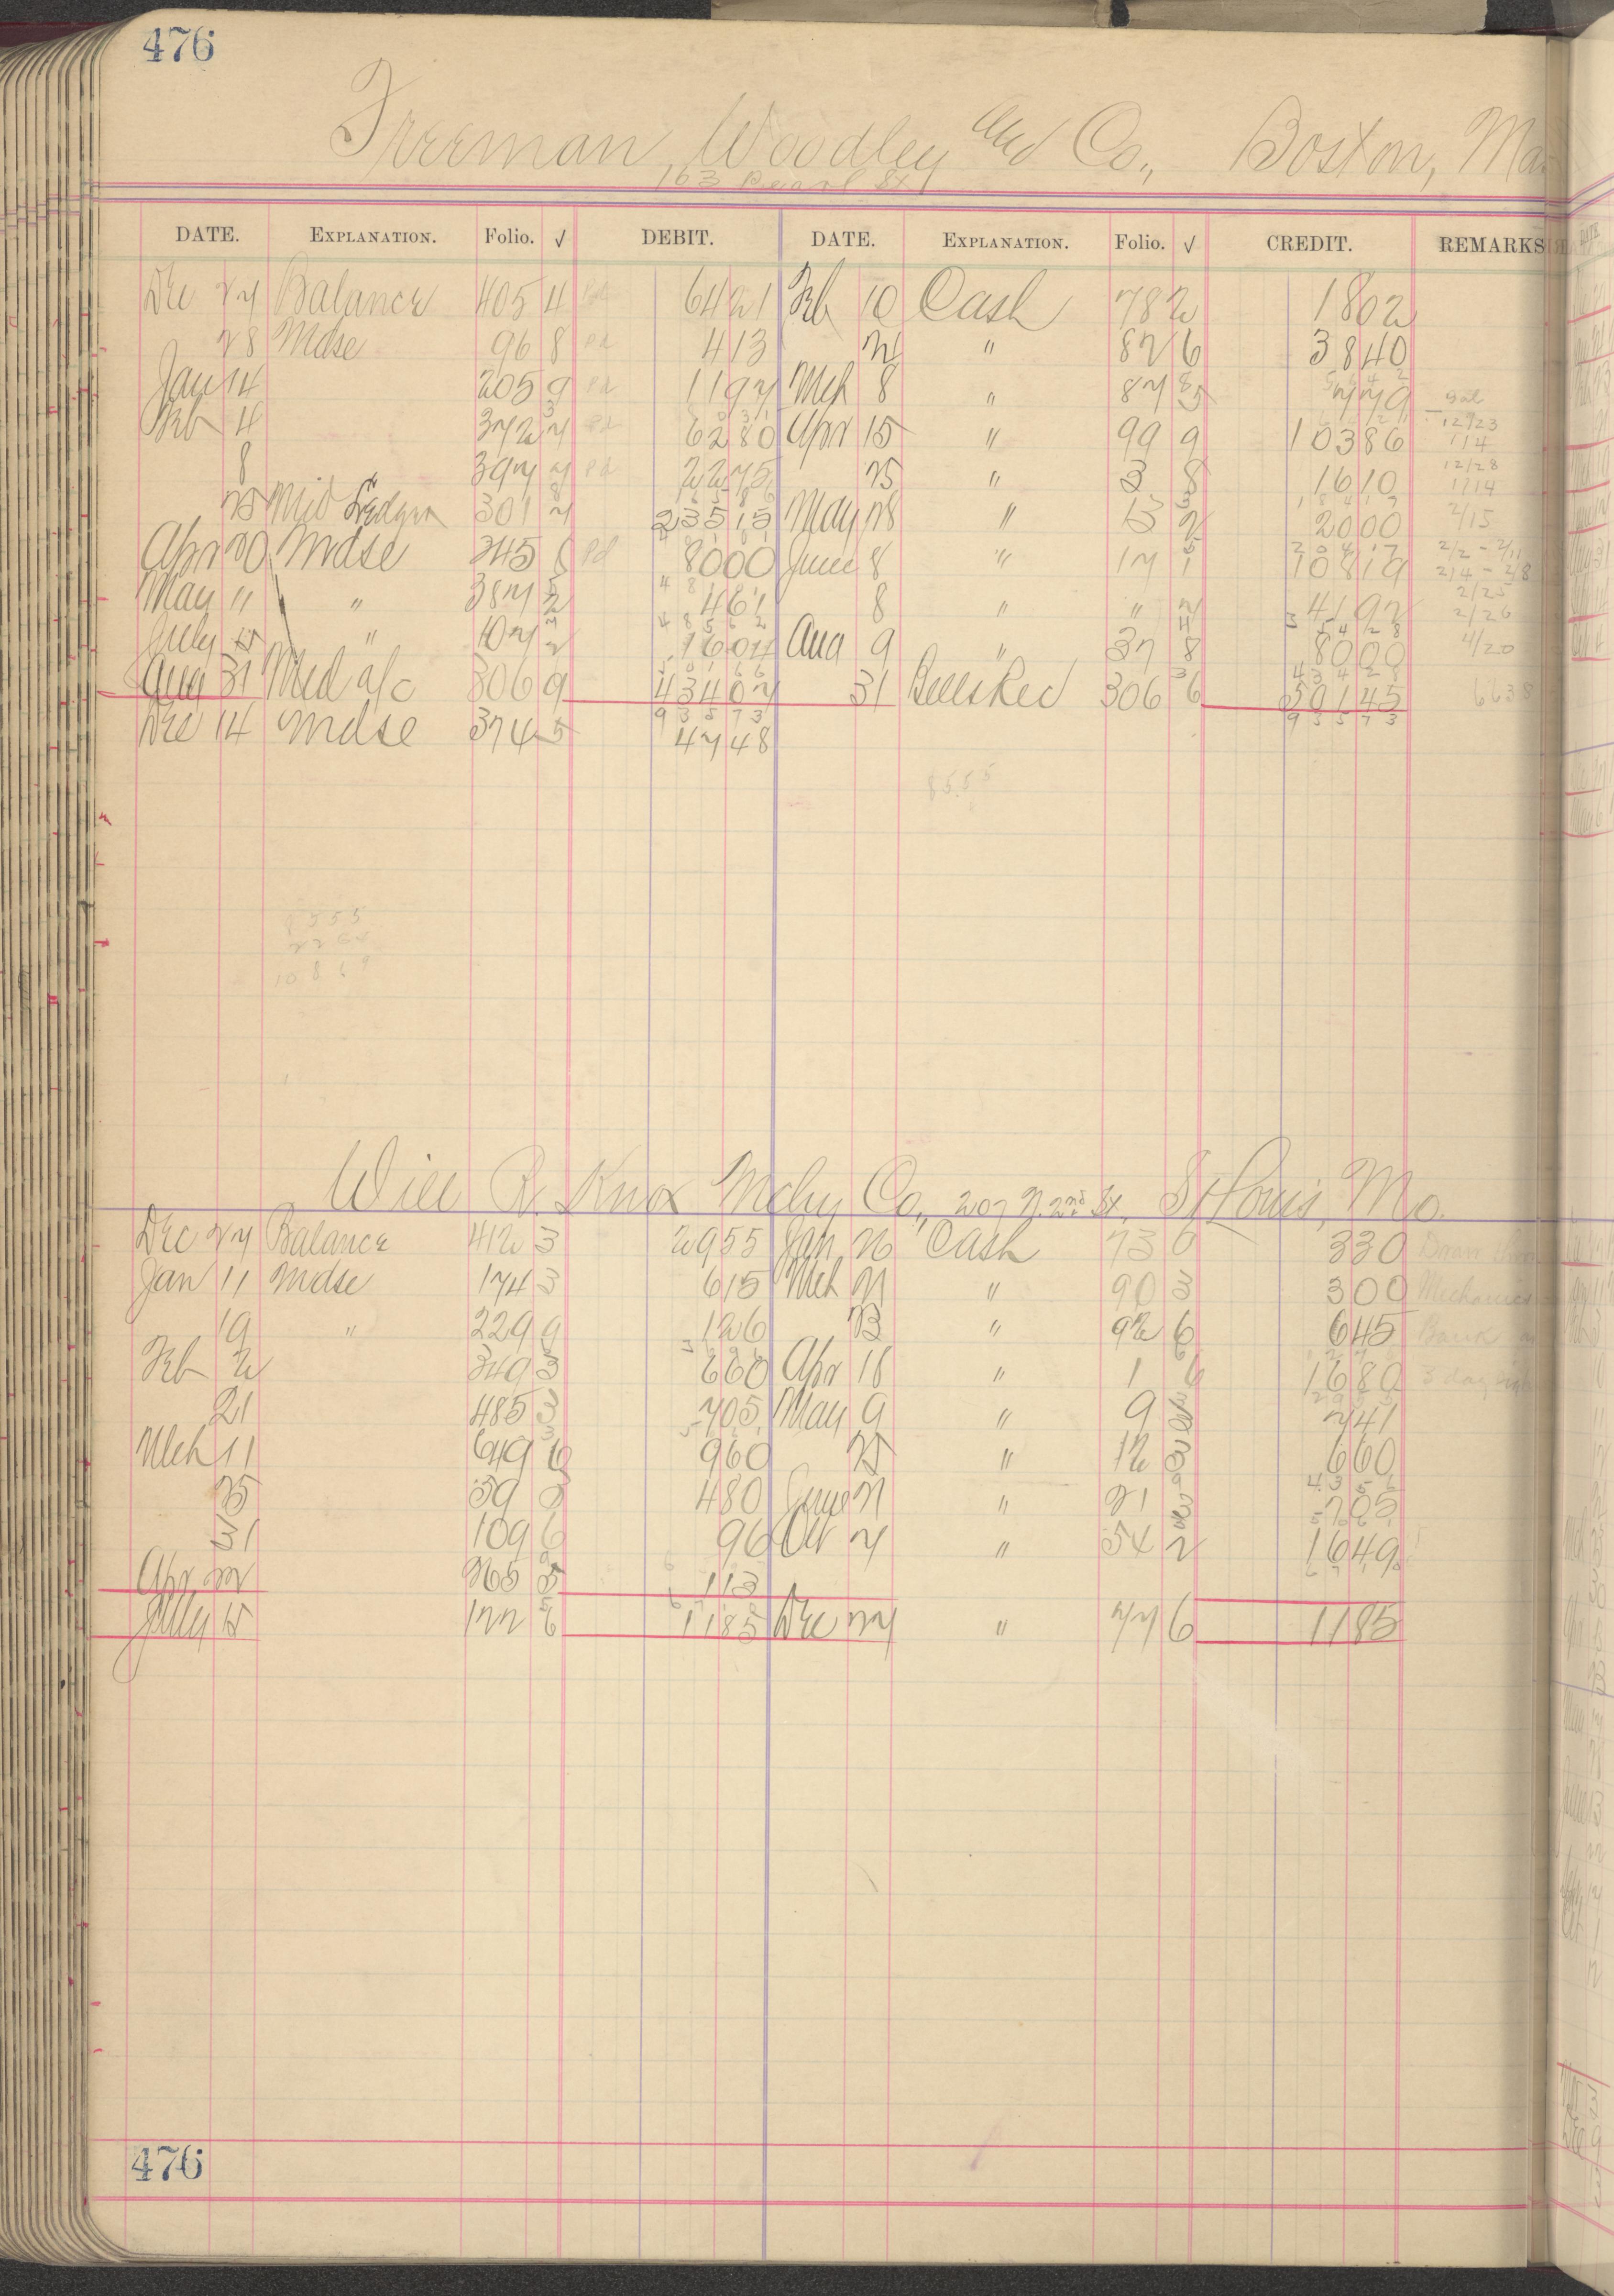 476
Freeman, Woodley and Co., Boston, Mas
163 Pearl St
DATE. EXPLANATION. Folio. √ DEBIT. DATE. EXPLANATION. Folio. √ CREDIT. REMARKS
Dec 27 Balance 405 4 Pd 6421 Feb 10 Cash 78 2 1802
28 Mdse 96 8 Pd 413 " 82 6 3840
Jan 14 205 9 Pd 1197 Mch 8 " 87 779 Bal
Feb 4 372 7 Pd 6280 Apr 15 " 99 9 10386 114
8 397 7 Pd 2275 25 " 3 8 1610 12/28
25 301 7 23515 May 28 " 13 2 2000 2/15
Apr 20 Mdse 245 Pd 8000 June 8 " 17 1 10819
May 11 " 387 2 461 8 " " 7 4192 2/26
July 15 " 107 2 1604 Aug 9 " 37 8 8000 4/20
Aug 31 Med a/c 306 9 43407 31 Bills Rec 306 6 50145 6638
93573 93573
Dec 14 Mdse 374 5 4748
8555
8555
10869
Will R. Knox Mchy Co., 207 N. 2nd St, St Louis, Mo.
Dec 27 Balance 412 3 2955 Jan 26 Cash 73 6 330
Jan 11 Mdse 174 3 615 Mch 21 " 90 3 300 Mechanics
19 " 229 9 126 23 " 92 6 645 Bank
Feb 2 349 3 660 Apr 18 " 1 6 1680 3 day
21 485 3 705 May 9 " 9 741
Mch 11 649 6 960 25 " 12 3 660
25 39 480 June 21 " 21 705
31 109 6 96 Oct 7 " 54 2 1649
Apr 22 265 5 113
July 15 122 6 1185 Dec 27 " 77 6 1185
476